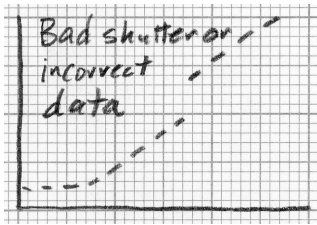 Bad shutter or
incorrect
data